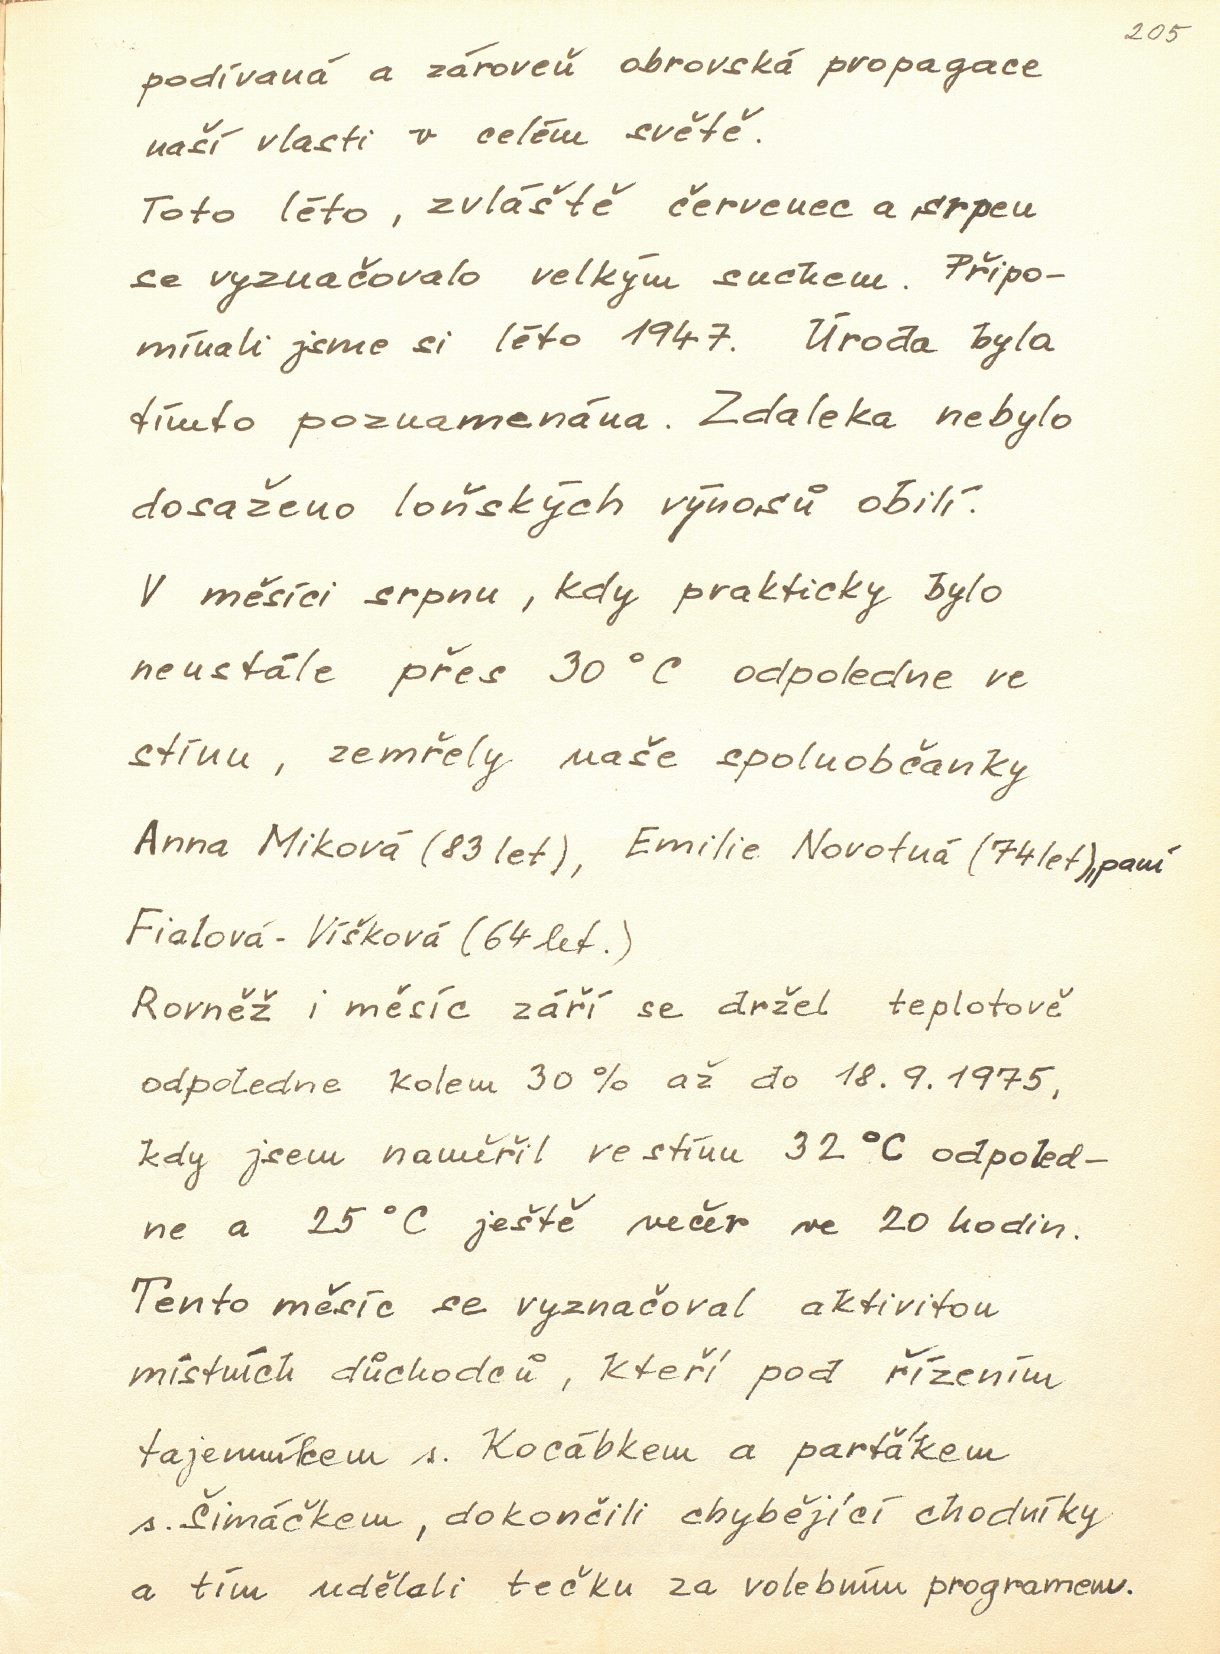 205
podívaná a zároveň obrovská propagace
naší vlasti v celém světě.
Toto léto, zvláště červenec a srpen
se vyznačovalo velkým suchem. Připo-
mínali jsme si léto 1947. Úroda byla
tímto poznamenána. Zdaleka nebylo
dosaženo loňských výnosů obilí.
V měsíci srpnu, kdy prakticky bylo
neustále přes 30 °C odpoledne ve
stínu, zemřely naše spoluobčanky
Anna Miková (83 let), Emilie Novotná (74 let), paní
Fialová - Víšková (64 let.)
Rovněž i měsíc září se držel teplotově
odpoledne kolem 30 % až do 18. 9. 1975,
kdy jsem naměřil ve stínu 32 °C odpoled-
ne a 25 °C ještě večer ve 20 hodin.
Tento měsíc se vyznačoval aktivitou
místních důchodců, kteří pod řízením
tajemníkem s. Kocábkem a partákem
s. Šimáčkem, dokončili chybějící chodníky
a tím udělali tečku za volebním programem.